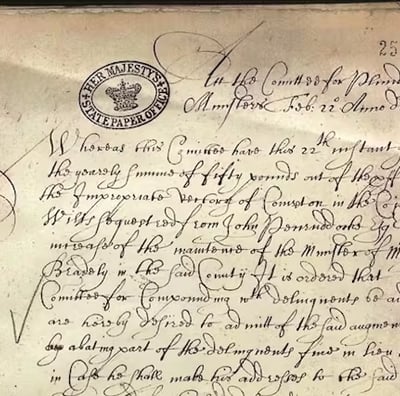 HER MAJESTY'S STATE PAPER OFFICE
25
Att the Comittee for Plund
Ministers Feb. 22º Anno D
Whereas this Comittee have this 22th instant
the yearely summe of fifty pounds out of the
the Impropriate Rectory of Compton in the Co
Wilts sequestred from John Penruddocke Esq
increase of the maintence of the Minister of M
Bradely in the said County It is ordered that
Comittee for Compounding wth delinquents be
are hereby desired to admitt of the said augmen
by abating part of the delinquents fine in lieu
in Case he shall make his addresses to the said